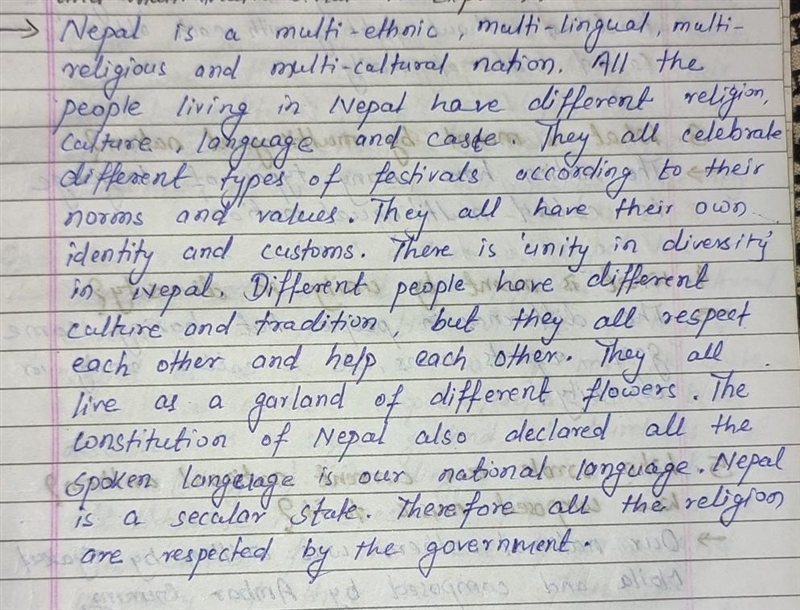 → Nepal is a multi-ethnic, multi-lingual, multi-
religious and multi-cultural nation. All the
people living in Nepal have different religion,
culture, language and caste. They all celebrate
different types of festivals according to their
norms and values. They all have their own
identity and customs. There is 'unity in diversity'
in Nepal. Different people have different
culture and tradition, but they all respect
each other and help each other. They all
live as a garland of different flowers. The
constitution of Nepal also declared all the
spoken language is our national language. Nepal
is a secular state. Therefore all the religion
are respected by the government.